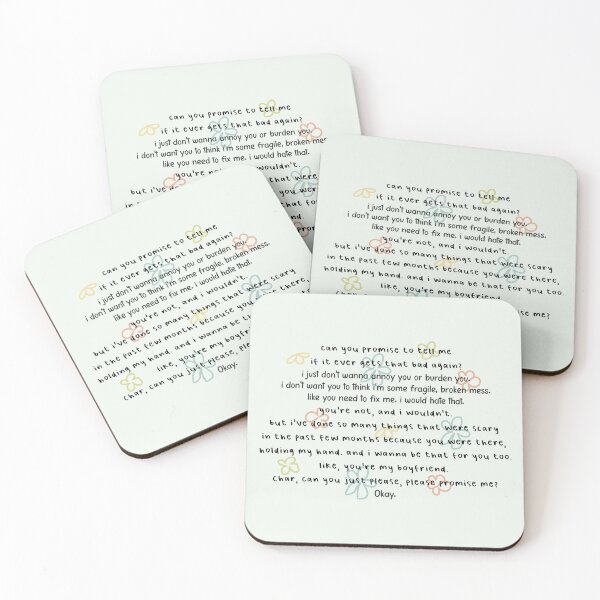 can you promise to tell me
if it ever gets that bad again?
i just don't wanna annoy you or burden you.
i don't want you to think i'm some fragile, broken
like you need to fix me. i would hate that.
you're not, and i wouldn't.
but i've
in
can you promise to tell me
if it ever gets that bad again?
i just don't wanna annoy you or burden you.
i don't want you to think i'm some fragile, broken mess.
like you need to fix me. i would hate that.
you're not, and i wouldn't.
but i've done so many things that were scary
in the past few months because you were there,
holding my hand. and i wanna be that for you too.
like, you're my boyfriend.
promise me?
can you promise to tell me
if it ever gets that bad again?
i just don't wanna annoy you or burden you.
i don't want you to think i'm some fragile, broken mess.
like you need to fix me. i would hate that.
you're not, and i wouldn't.
but i've done so many things that were scary
in the past few months because you were there,
holding my hand. and i wanna be that
like, you're my boyfriend.
char, can you just please, please
Okay.
can you promise to tell me
if it ever gets that bad again?
i just don't wanna annoy you or burden you.
i don't want you to think i'm some fragile, broken mess.
like you need to fix me. i would hate that.
you're not, and i wouldn't.
but i've done so many things that were scary
in the past few months because you were there,
holding my hand. and i wanna be that for you too.
like, you're my boyfriend.
char, can you just please, please promise me?
Okay.